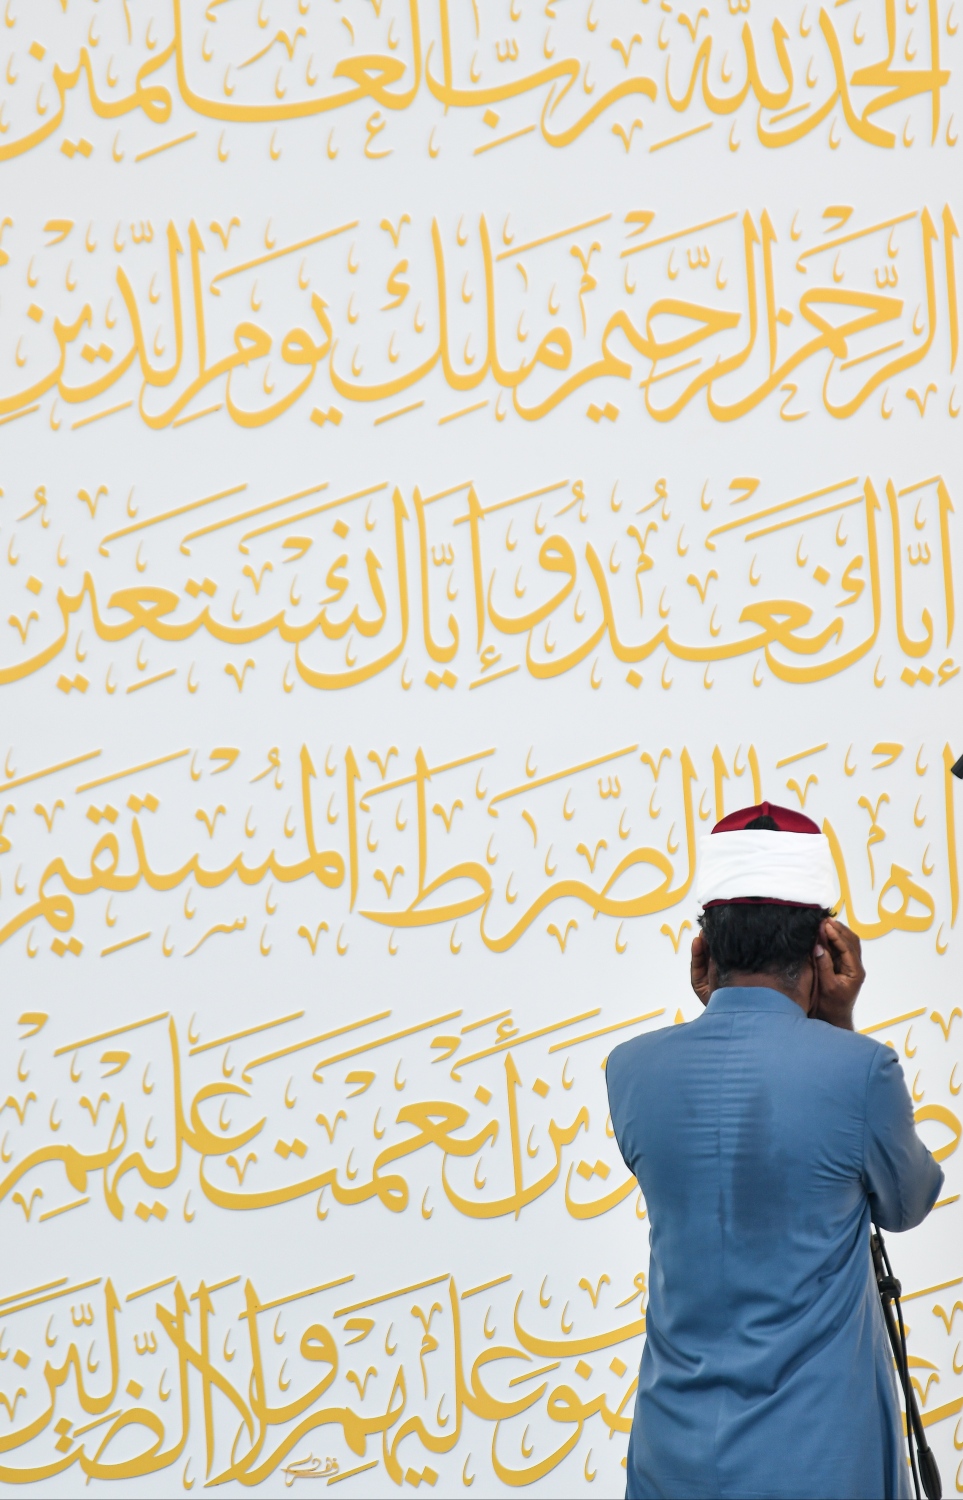 الحمد لله رب العلمين
الرحمن الرحيم ملك يوم الدين
إياك نعبد وإياك نستعين
اهدنا الصرط المستقيم
أنعمت عليهم
عليهم ولا الضالين